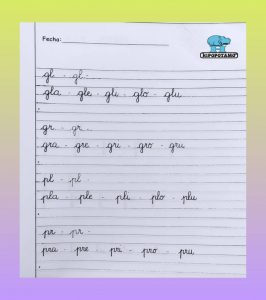 Fecha:
HIPOPOTAMO
gl - gl -
gla - gle - gli - glo - glu
gr - gr
gra - gre - gri - gro - gru
pl - pl -
pla - ple - pli - plo - plu
pr - pr -
pra - pre - pri - pro - pru